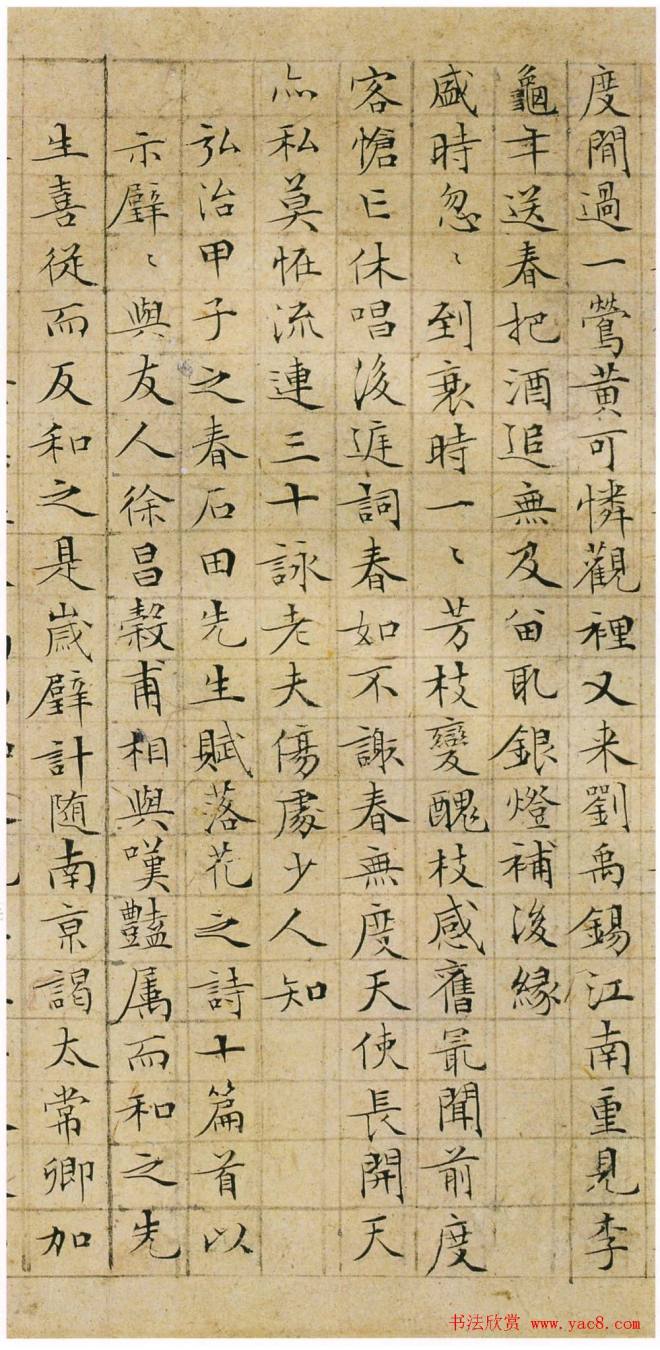 度閒過一鶯黃可憐觀裡又来劉禹錫江南重見李
龜年送春把酒追無及留取銀燈補後縁
盛時忽〻到衰時一〻芳枝變醜枝感舊最聞前度
客愴亡休唱後庭詞春如不謝春無度天使長開天
亦私莫恠流連三十詠老夫傷處少人知
弘治甲子之春石田先生賦落花之詩十篇首以
示璧〻與友人徐昌榖甫相與嘆豔属而和之先
生喜從而反和之是嵗璧計随南京謁太常卿加
书法欣赏 www.yac8.com